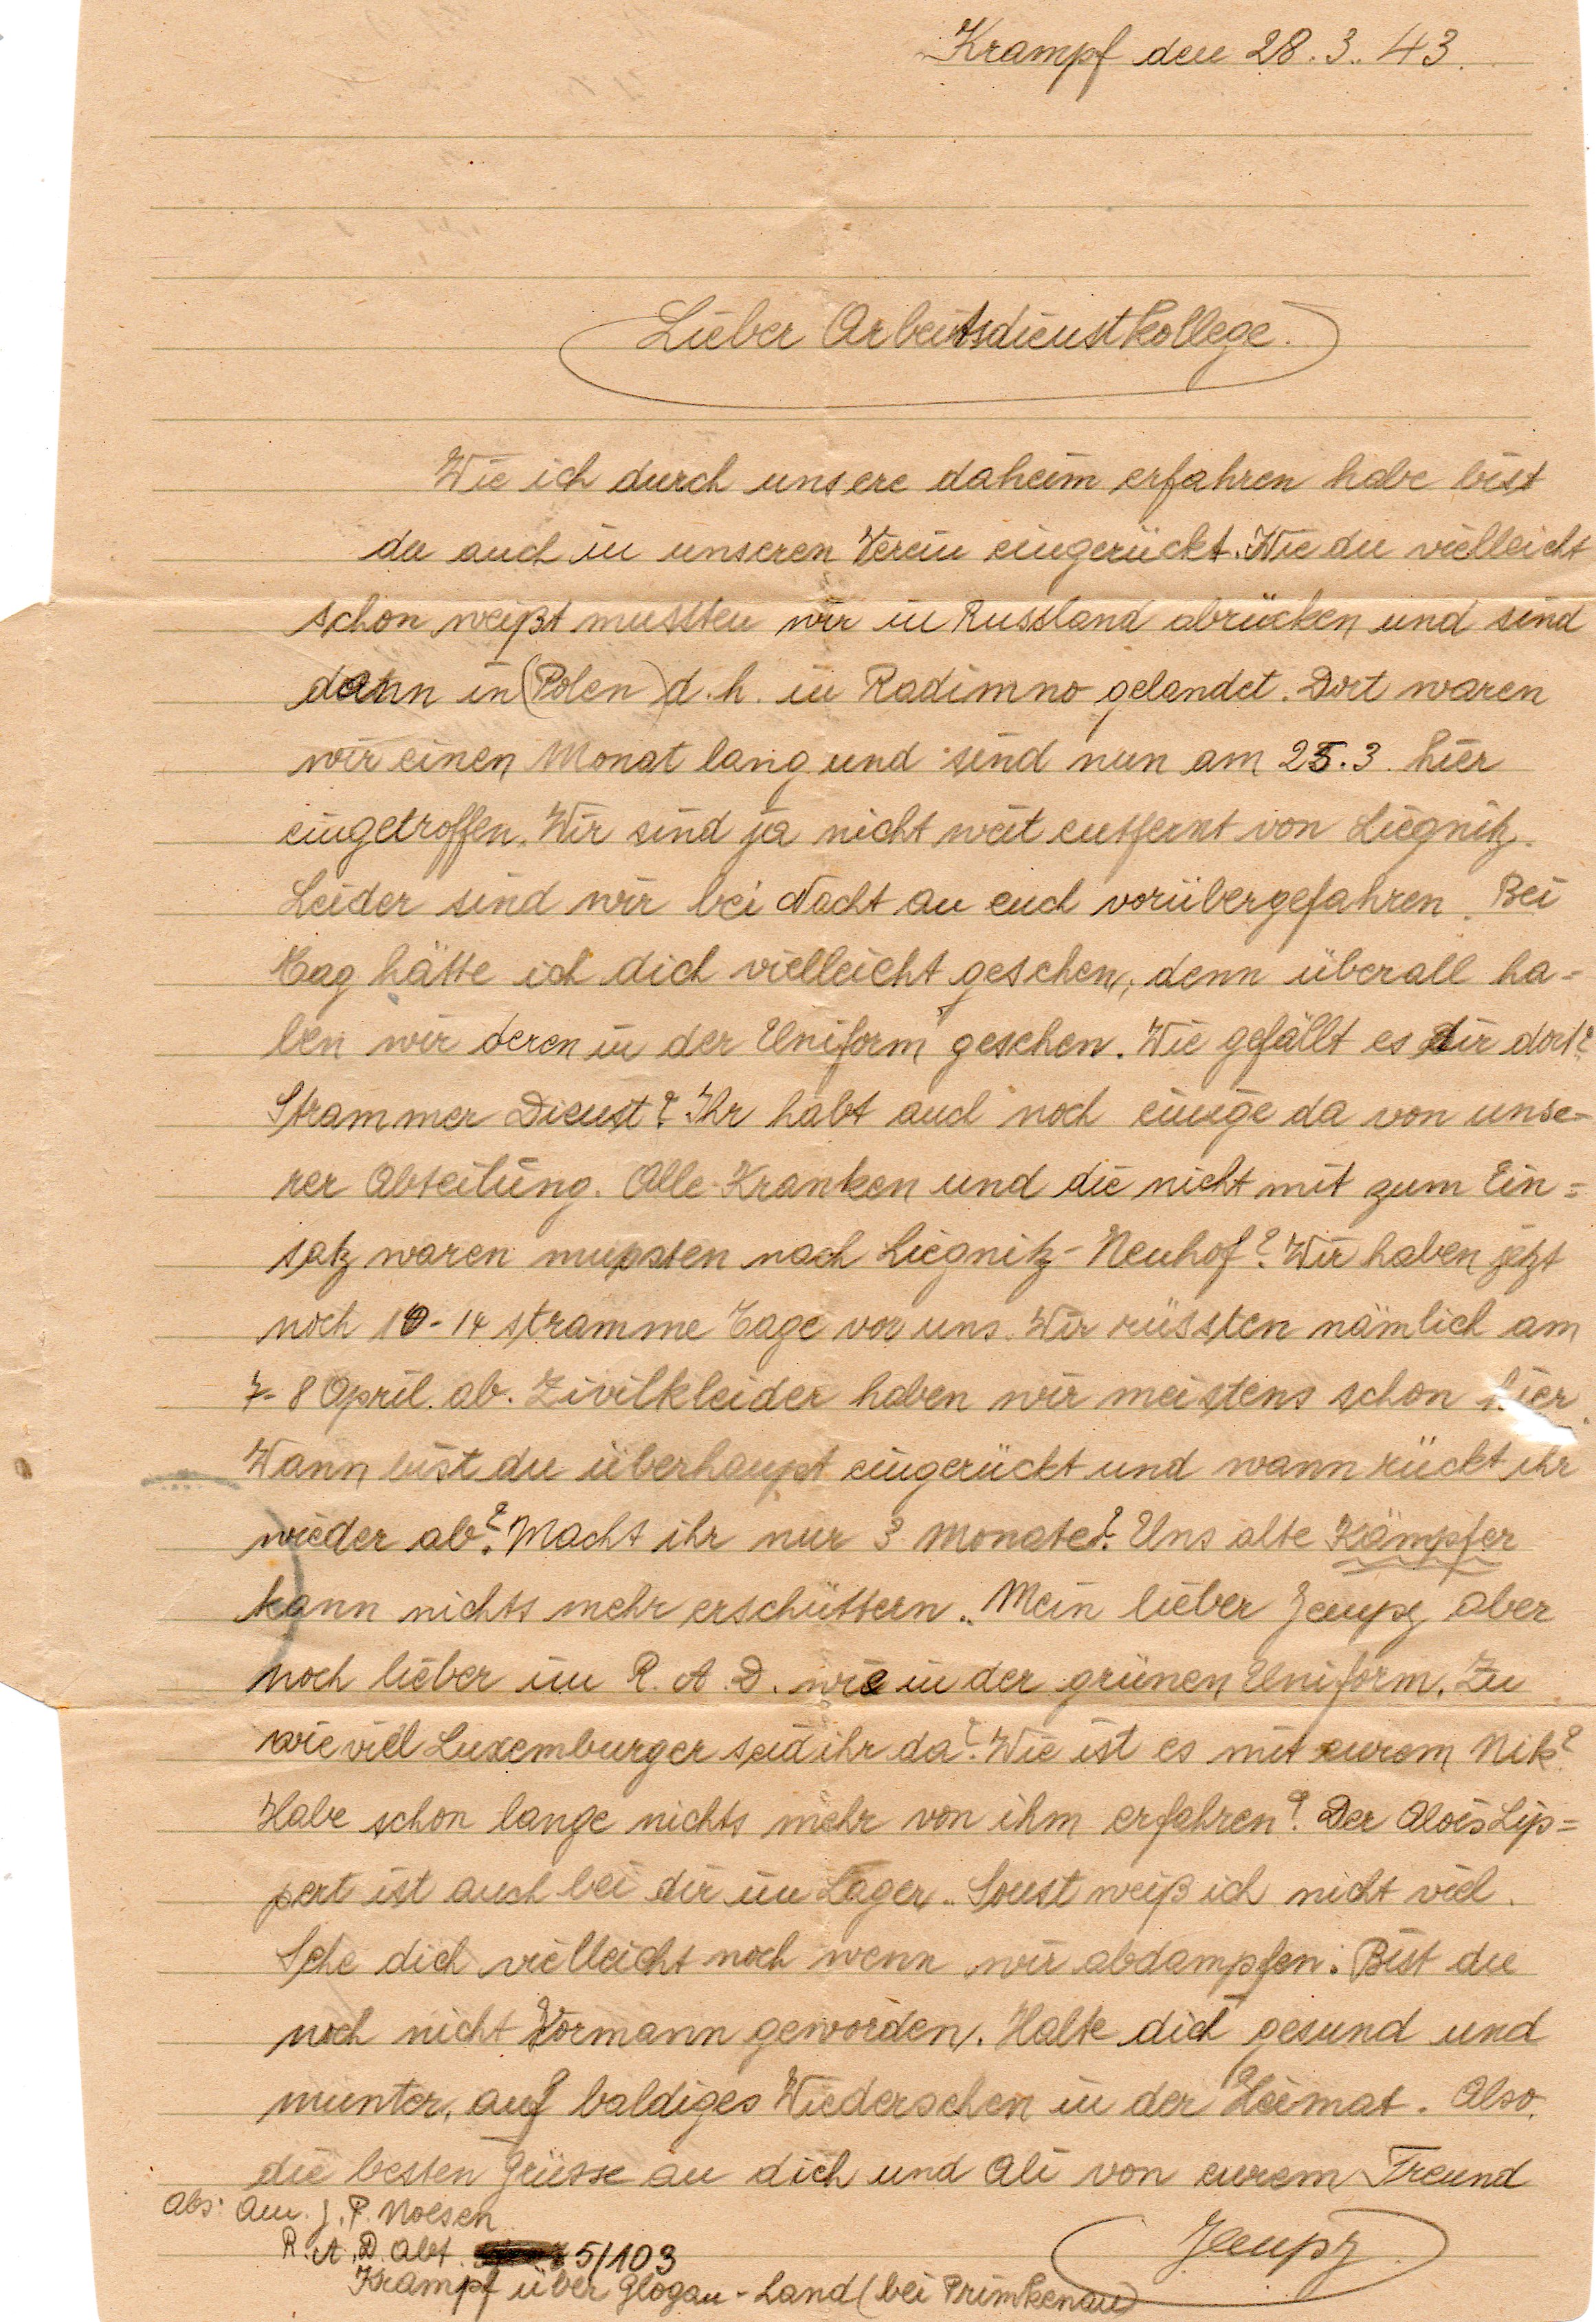 Krampf den 28.3.43.
Lieber Arbeitsdienstkollege.
Wie ich durch unsere daheim erfahren habe bist
du auch in unseren Verein eingerückt. Wie du vielleicht
schon weißt mussten wir in Russland abrücken und sind
dann in (Polen) d.h. in Radimno gelandet. Dort waren
wir einen Monat lang und sind nun am 25.3. hier
eingetroffen. Wir sind ja nicht weit entfernt von Liegnitz.
Leider sind wir bei Nacht an euch vorübergefahren. Bei
Tag hätte ich dich vielleicht gesehen, denn überall ha=
ben wir deren in der Uniform gesehen. Wie gefällt es dir dort?
Strammer Dienst? Ihr habt auch noch einige da von unse=
rer Abteilung. Alle Kranken und die nicht mit zum Ein=
satz waren mussten nach Liegnitz-Neuhof? Wir haben jetzt
noch 10-14 stramme Tage vor uns. Wir rüssten nämlich am
7-8 April. ab. Zivilkleider haben wir meistens schon hier.
Wann bist du überhaupt eingerückt und wann rückt ihr
wieder ab? Macht ihr nur 3 Monate? Uns alte Kämpfer
kann nichts mehr erschüttern. Mein lieber Jempy aber
noch lieber im R.A.D. wie in der grünen Uniform. Zu
wieviel Luxemburger seid ihr da? Wie ist es mit eurem Nik?
Habe schon lange nichts mehr von ihm erfahren? Der Alois Lip=
pert ist auch bei dir im Lager. Sonst weiß ich nicht viel.
Sehe dich vielleicht noch wenn wir abdampfen. Bist du
noch nicht Vormann geworden. Halte dich gesund und
munter, auf baldiges Wiedersehen in der Heimat. Also,
die besten Grüsse an dich und Ali von eurem Freund
Jempy
Abs: Am. J. P. Noesen
R.A.D. Abt. 5/103
Krampf über Glogau-Land (bei Primkenau)